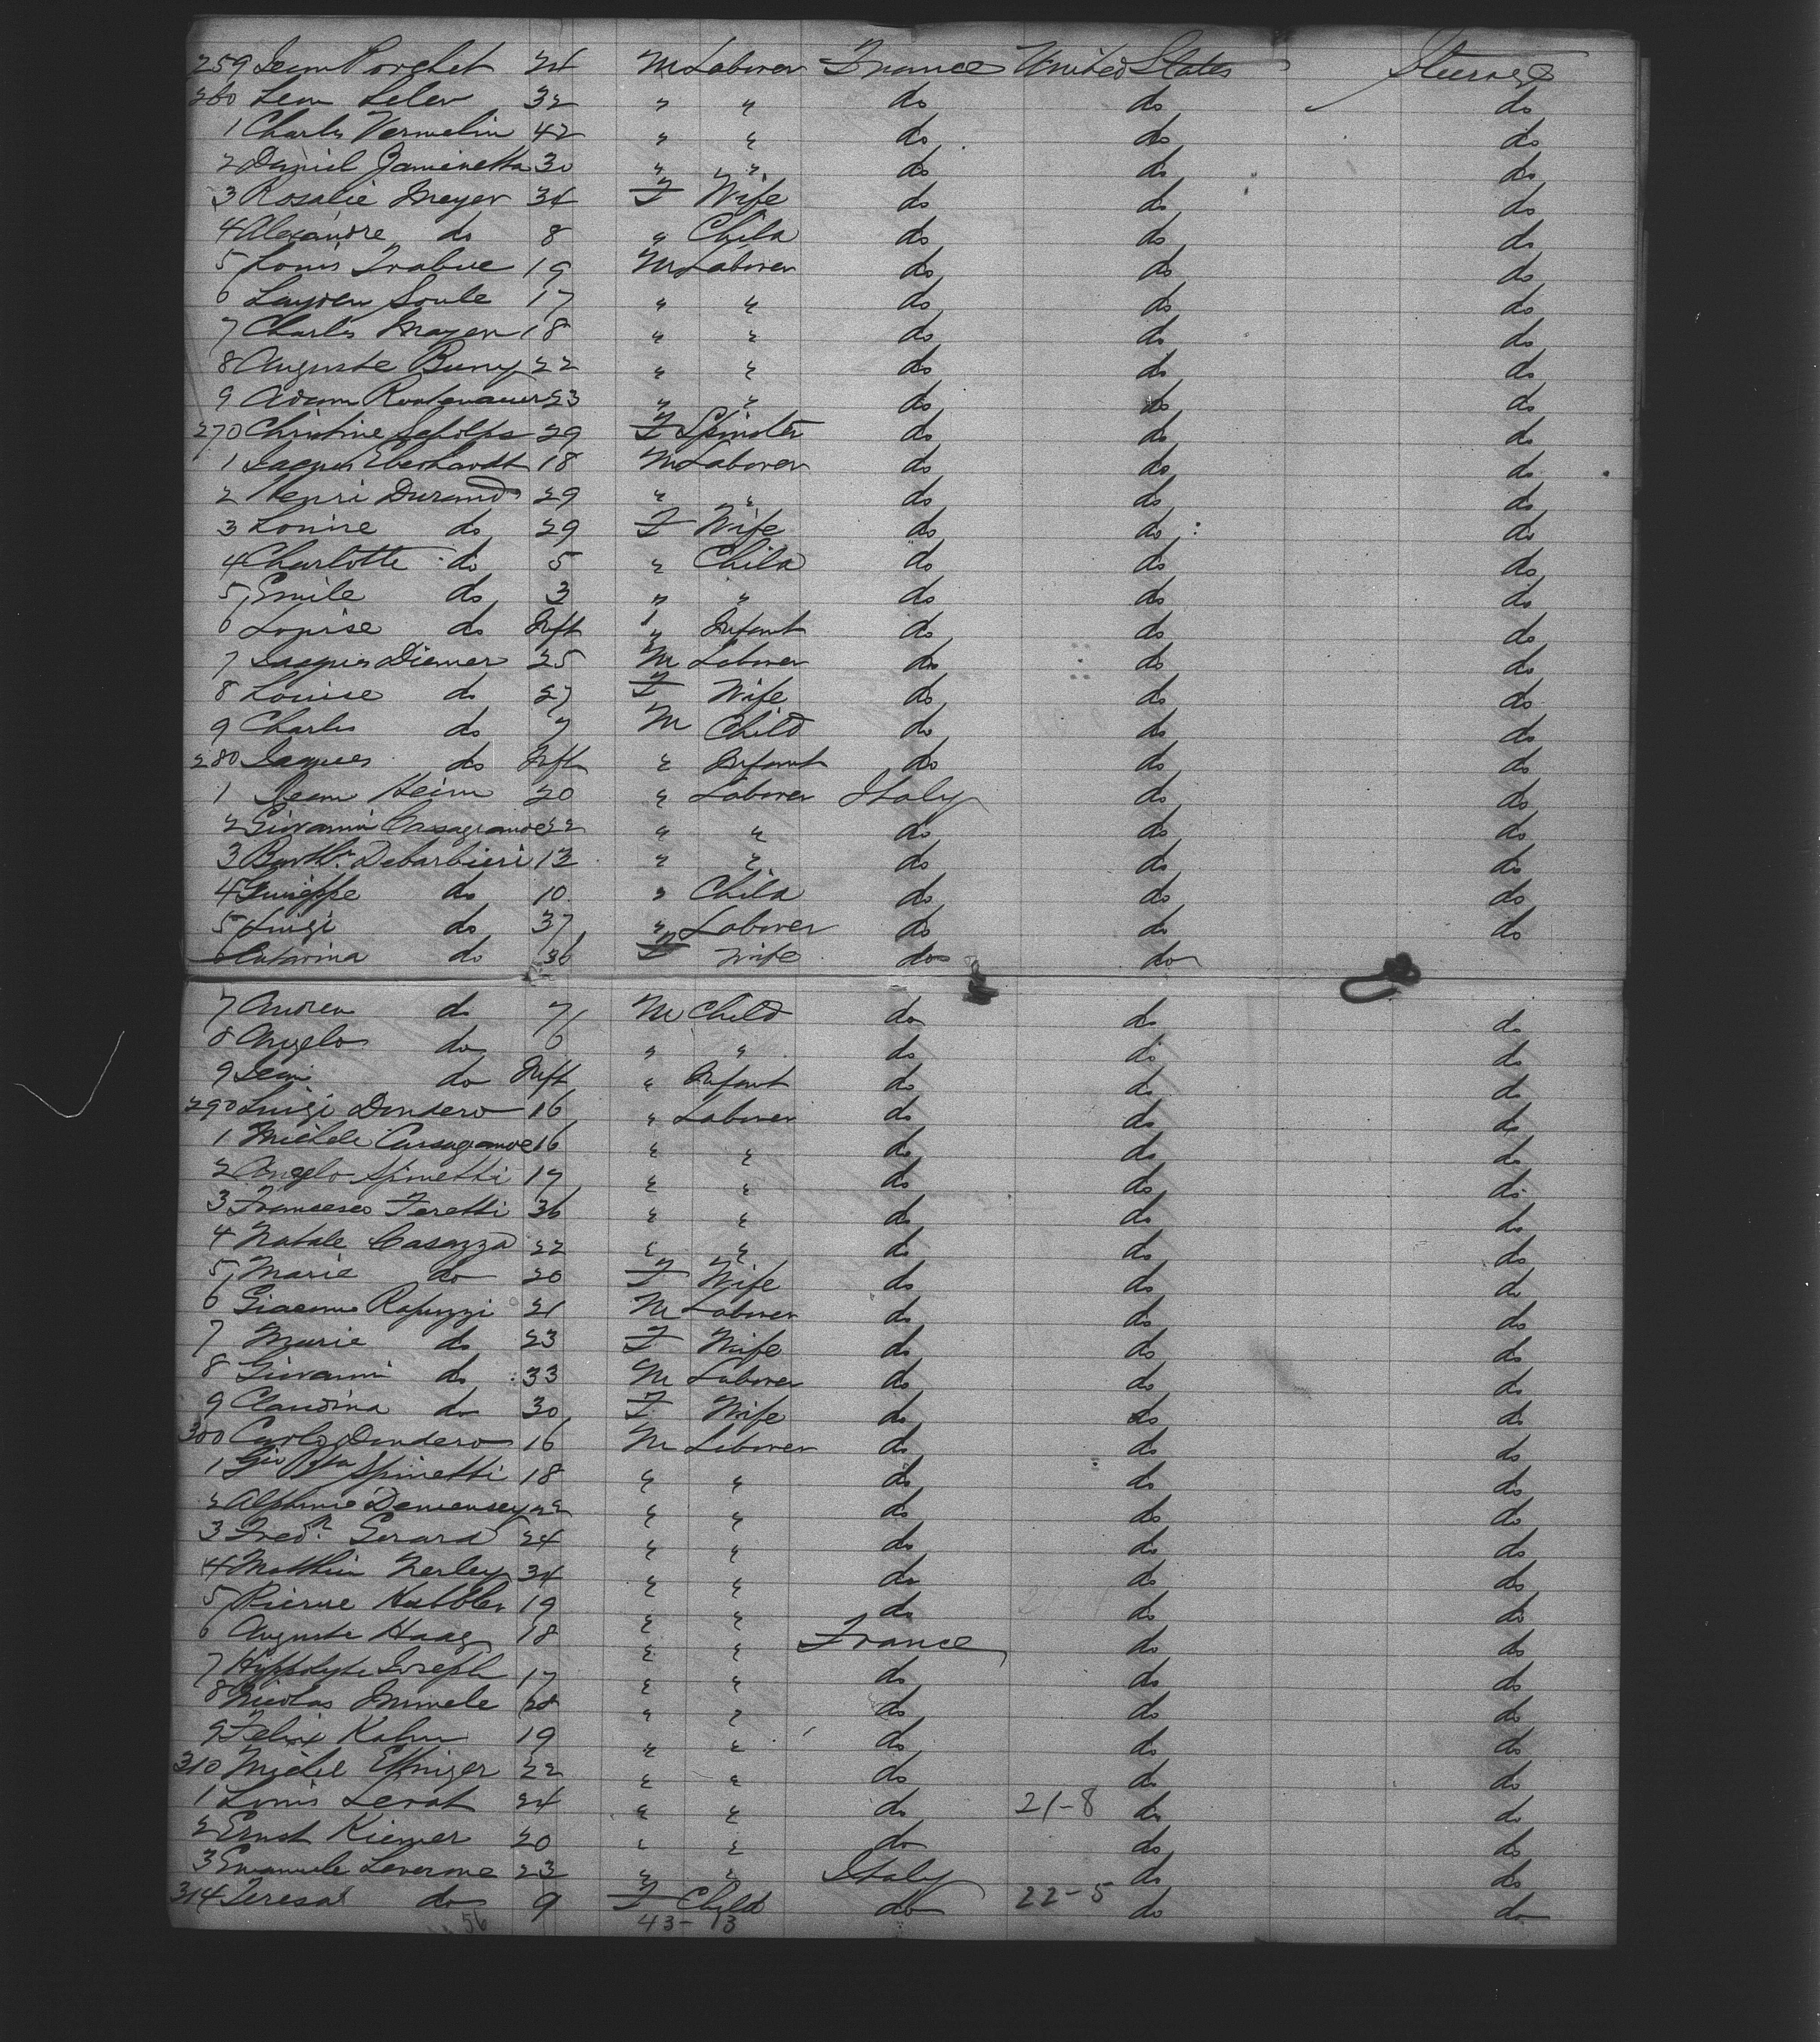 259 Jean Porchet 24 M Laborer France United States Steerage
260 Leon Seler 32 " " do do do
1 Charles Vermelin 42 " " do do do
2 Daniel Zaminetta 30 " " do do do
3 Rosalie Meyer 34 F Wife do do do
4 Alexandre do 8 " Child do do do
5 Louis Trabue 19 M Laborer do do do
6 Soule 17 " " do do do
7 Charles Mayer 18 " " do do do
8 Auguste Buny 22 " " do do do
9 Adam 23 " " do do do
270 Christine 29 F Spinster do do do
1 Jaques Eberhardt 18 M Laborer do do do
2 Henri Durand 29 " " do do do
3 Louise do 29 F Wife do do do
4 Charlotte do 5 " Child do do do
5 Emile do 3 " " do do do
6 Louise do Inft " Infant do do do
7 Jacques Diemer 25 M Laborer do do do
8 Louise do 27 F Wife do do do
9 Charles do 7 M Child do do do
280 Jaques do Inft " Infant do do do
1 Jean Heim 20 " Laborer Italy do do
2 Giovanni Casagrande 22 " " do do do
3 Barthr Debarbieri 13 " " do do do
4 Guiseppe do 10 " Child do do do
5 Luigi do 37 " Laborer do do do
6 Catarina do 36 F Wife do do
7 Andrea do 7 M Child do do do
8 Angelo do 6 " " do do do
9 do Inft " Infant do do do
290 Luigi Dondero 16 " Laborer do do do
1 Michele Cassagande 16 " " do do do
2 Angelo Spinetti 17 " " do do do
3 Francesco Feretti 36 " " do do do
4 Natale Casazza 22 " " do do do
5 Marie do 20 F Wife do do do
6 Giacomo Rapuzzi 21 M Laborer do do do
7 Marie do 23 F Wife do do do
8 Giovanni do 33 M Laborer do do do
9 Claudina do 30 F Wife do do do
300 Carlo Dondero 16 M Laborer do do do
1 Gio Bta Spinetti 18 " " do do do
2 Alphonse Demensey 22 " " do do do
3 Fredr Gerard 24 " " do do do
4 Matthieu Nerley 34 " " do do do
5 Pierre Hubbler 19 " " do do do
6 Auguste Haag 18 " " France do do
7 Hippolyte Joseph 17 " " do do do
8 Nicolas Immele 20 " " do do do
9 Felix Kahn 19 " " do do do
310 Michel Ettinger 22 " " do do do
1 Louis Lerat 24 " " do 21-8 do do
2 Ernst Kiemer 20 " " do do do
3 Emanuele Leverone 23 " " Italy do do
314 Teresa do 9 F Child do 22-5 do do
56 43-13